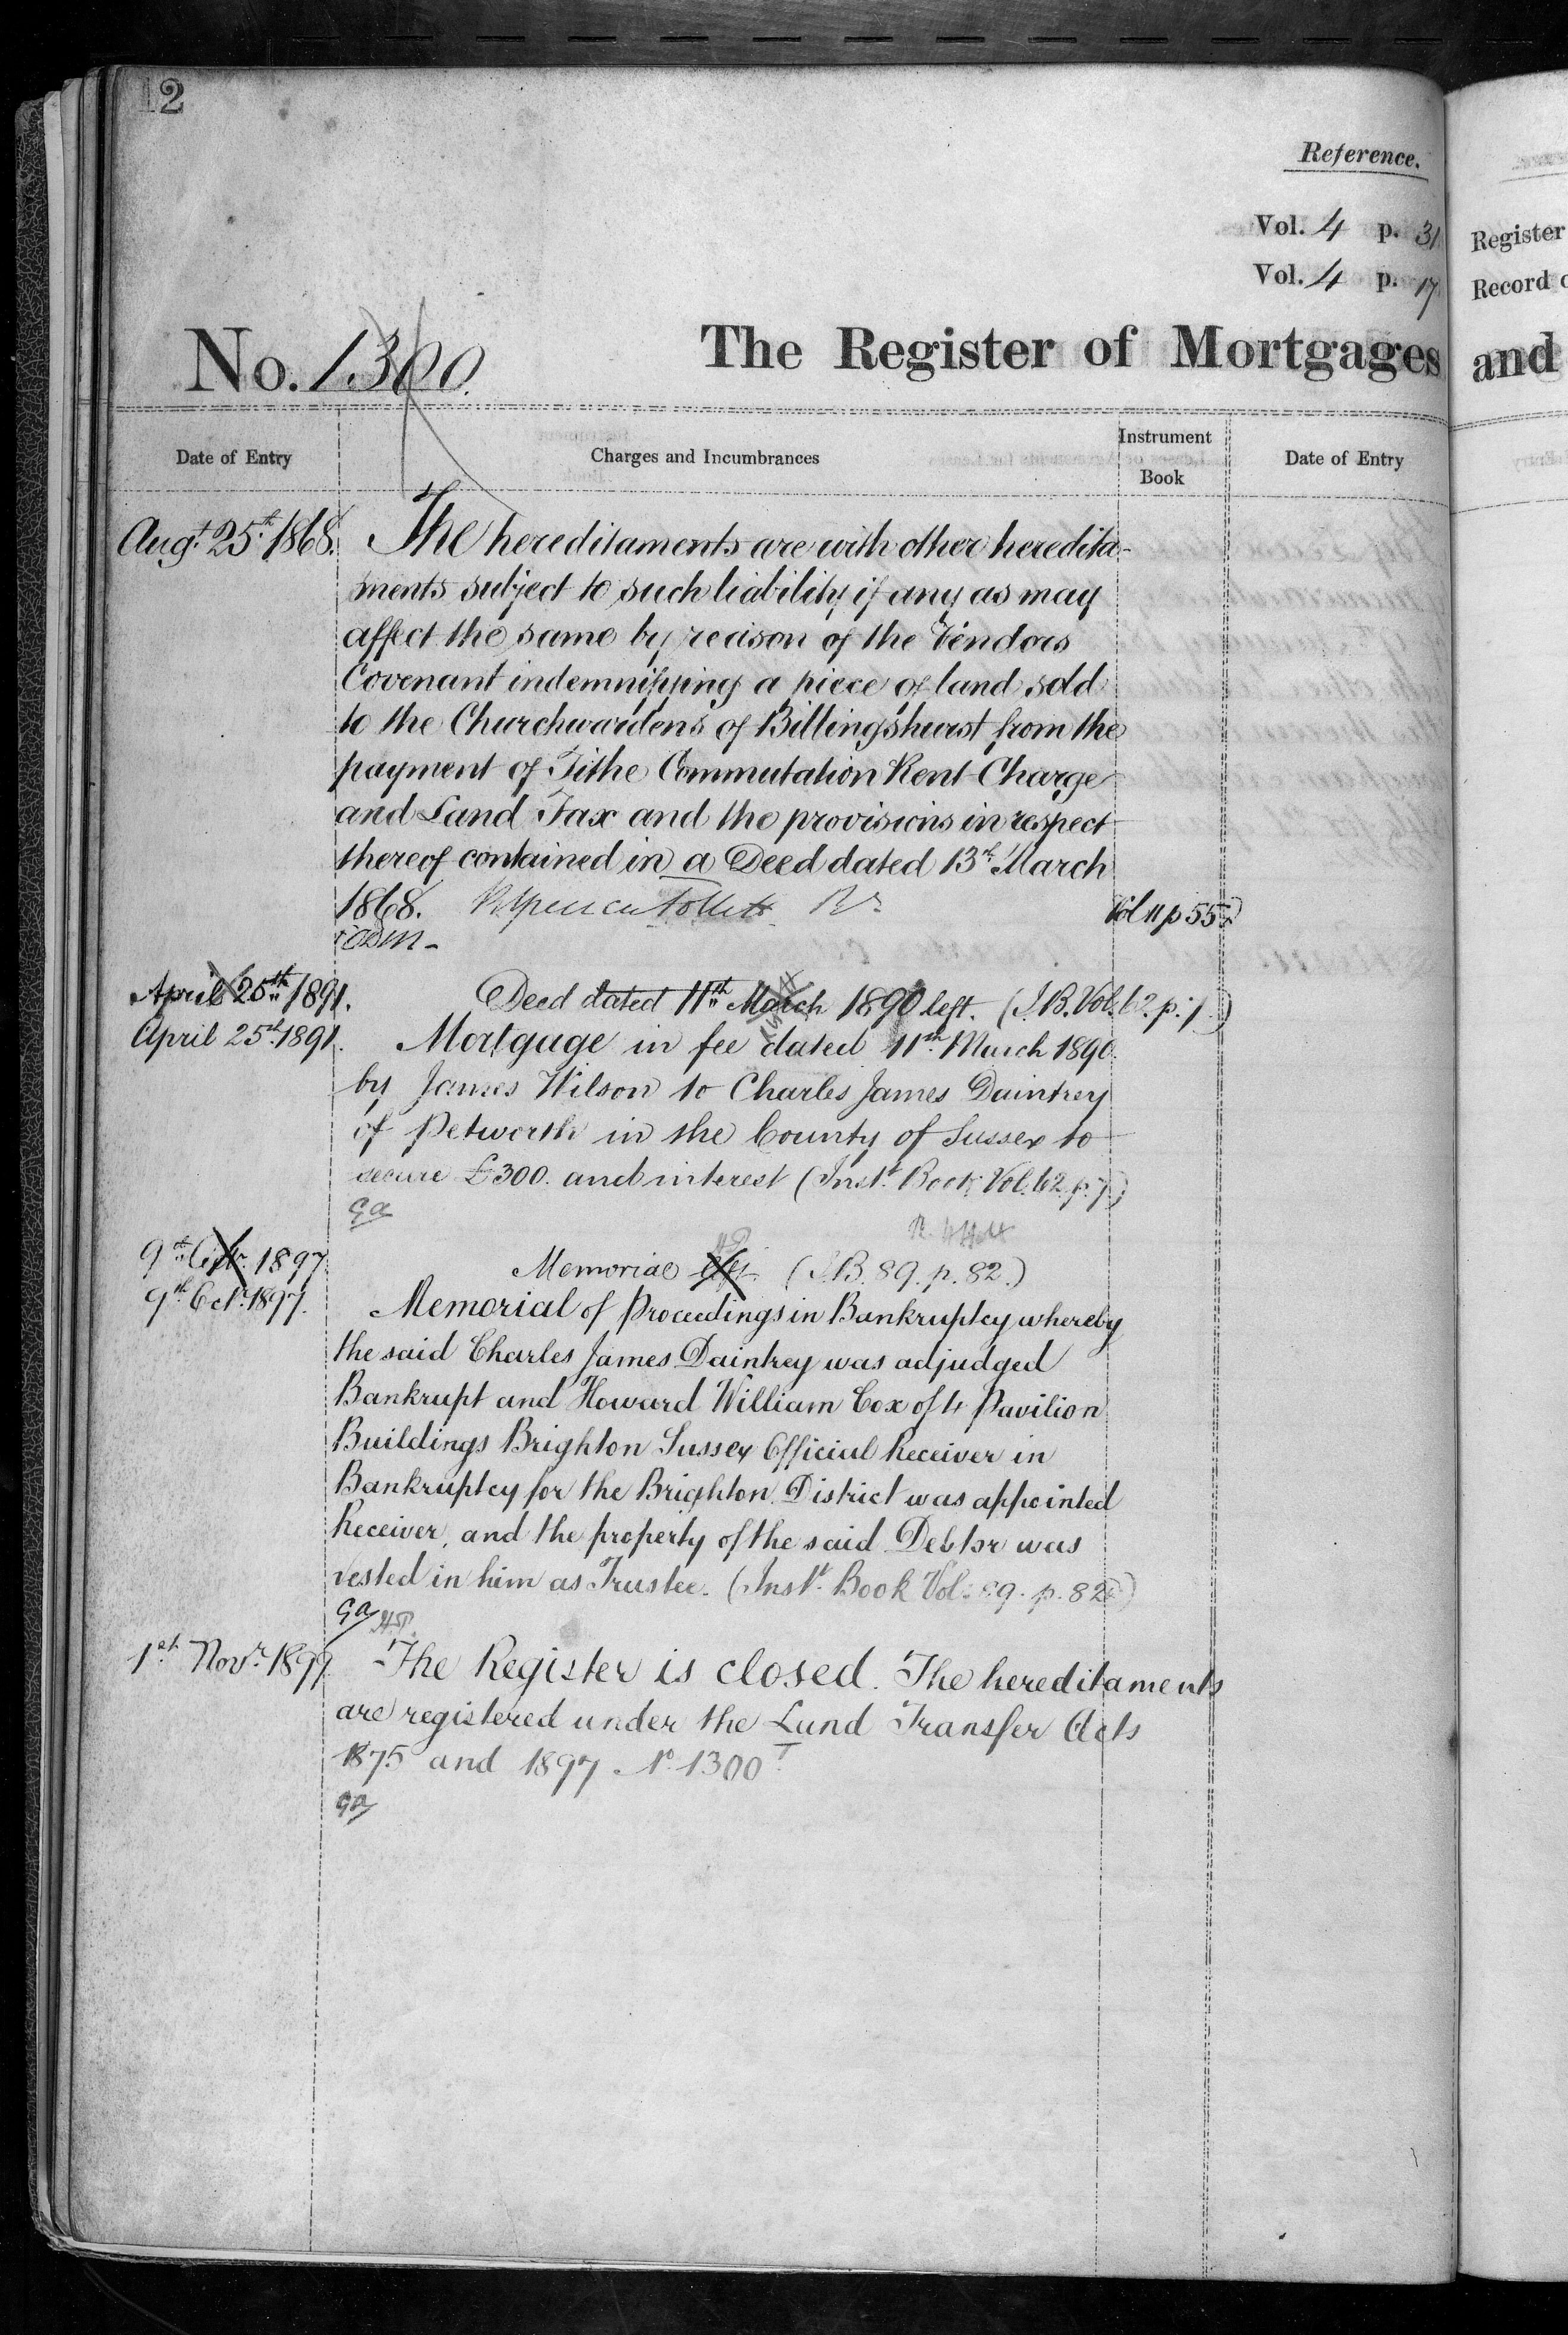 12
Reference.
Vol. 4 p. 31
Vol. 4 p. 17
No. 1300.
The Register of Mortgages
Date of Entry
Charges and Incumbrances
Instrument Book
Date of Entry
Augt. 25th. 1868. The hereditaments are with other heredita-
ments subject to such liability if any as may
affect the same by reason of the Vendors
Covenant indemnifying a piece of land sold
to the Churchwardens of Billingshurst from the
payment of Tithe Commutation Rent Charge
and Land Tax and the provisions in respect
thereof contained in a Deed dated 13th March
1868. Follett Rr. Vol 11 p 552
April 25th 1891. Deed dated 11th March 1890 left. (I.B. Vol. 62. p. 7.)
April 25th 1891. Mortgage in fee dated 11th March 1890.
by James Wilson to Charles James Daintrey
of Petworth in the County of Sussex to
secure £300. and interest (Inst. Book Vol. 62. p. 7)
ga
9th Octr. 1897. Memorial (I.B. 89. p. 82.)
9th Oct. 1897. Memorial of Proceedings in Bankruptcy whereby
the said Charles James Daintrey was adjudged
Bankrupt and Howard William Cox of 4 Pavilion
Buildings Brighton Sussex Official Receiver in
Bankruptcy for the Brighton District was appointed
Receiver, and the property of the said Debtor was
vested in him as Trustee. (Inst. Book Vol. 89. p. 82)
ga H.P.
1st Novr. 1899 The Register is closed. The hereditaments
are registered under the Land Transfer Acts
1875 and 1897 No. 1300T
ga
Register
Record
and